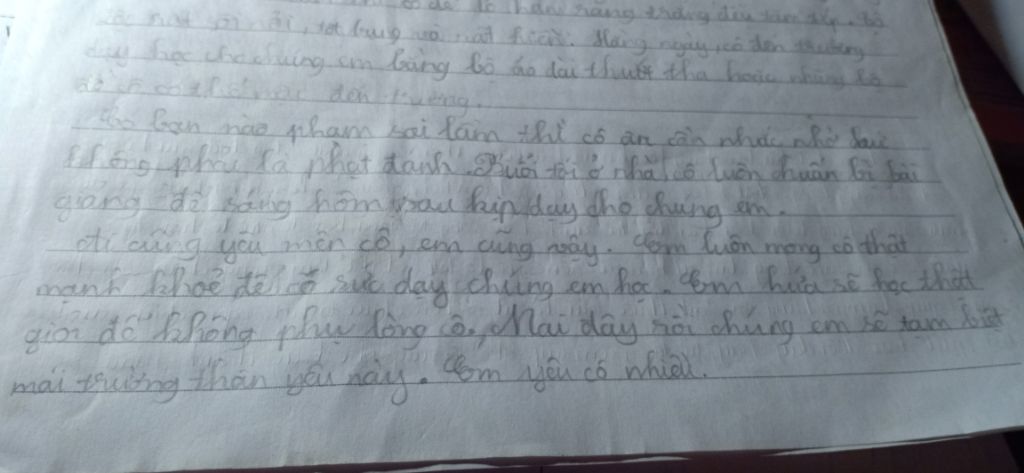 hàm răng trắng đều tăm tắp.
rất sôi nổi, tốt bụng và Hàng ngày, cô đến trường
dạy học cho chúng em bằng bộ áo dài thướt tha hoặc những bộ
đồ cô có thể mặc đến trường.
Có bạn nào phạm sai lầm thì cô ân cần nhắc nhở
không phải là phạt đánh. Buổi tối ở nhà, cô luôn chuẩn bị bài
giảng để sáng hôm sau kịp dạy cho chúng em.
Ai cũng yêu mến cô, em cũng vậy. Em luôn mong cô thật
mạnh khoẻ để có sức dạy chúng em học. Em hứa sẽ học thật
giỏi để không phụ lòng cô. Mai đây rồi chúng em sẽ tạm biệt
mái trường thân yêu này. Em yêu cô nhiều.